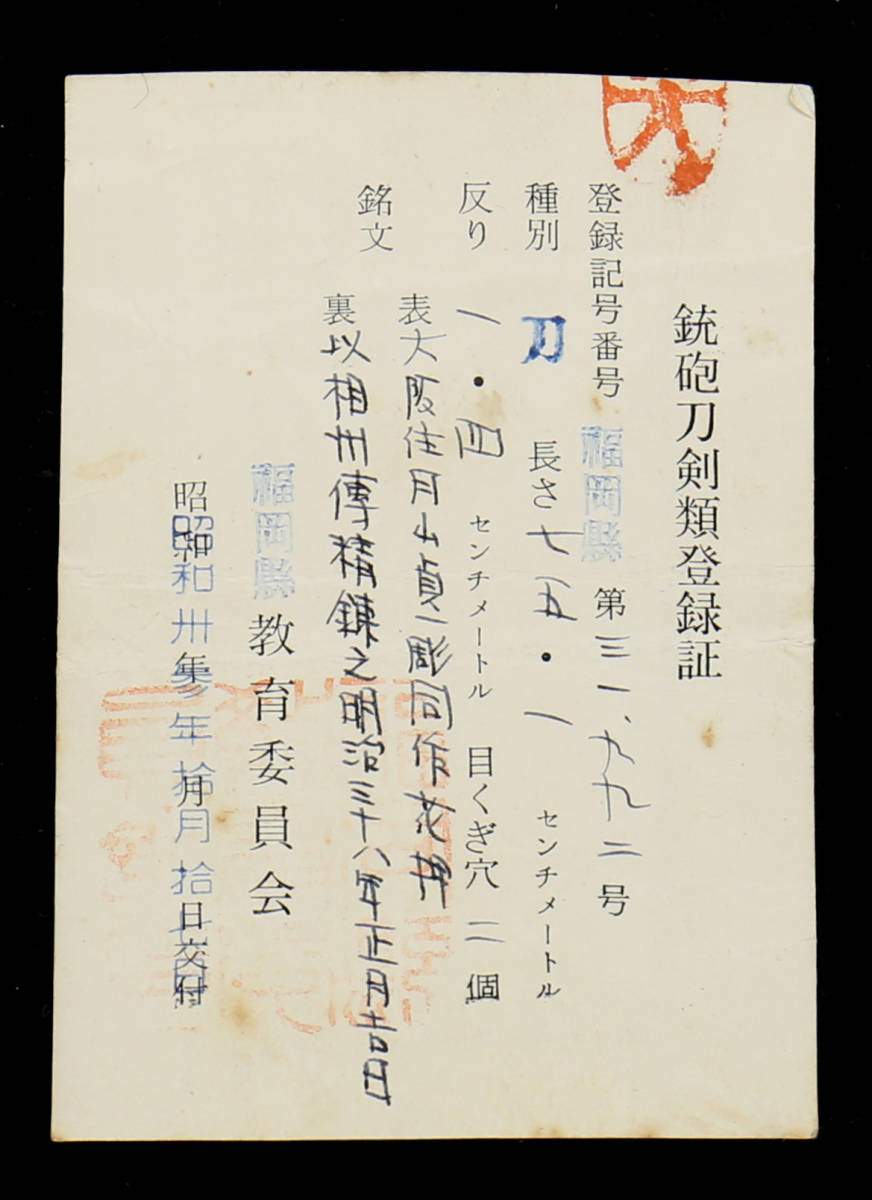 銃砲刀剣類登録証
登録記号番号 福岡縣 第三一、九九二号
種別 刀 長さ 七五・一 センチメートル
反り 一・四 センチメートル 目くぎ穴 二 個
銘文 表 大阪住月山貞一彫同作花押
裏 以相州傳精錬之明治三十八年正月吉日
福岡縣 教育委員会
昭和 年 月 日交付
昭和卅参年拾月拾